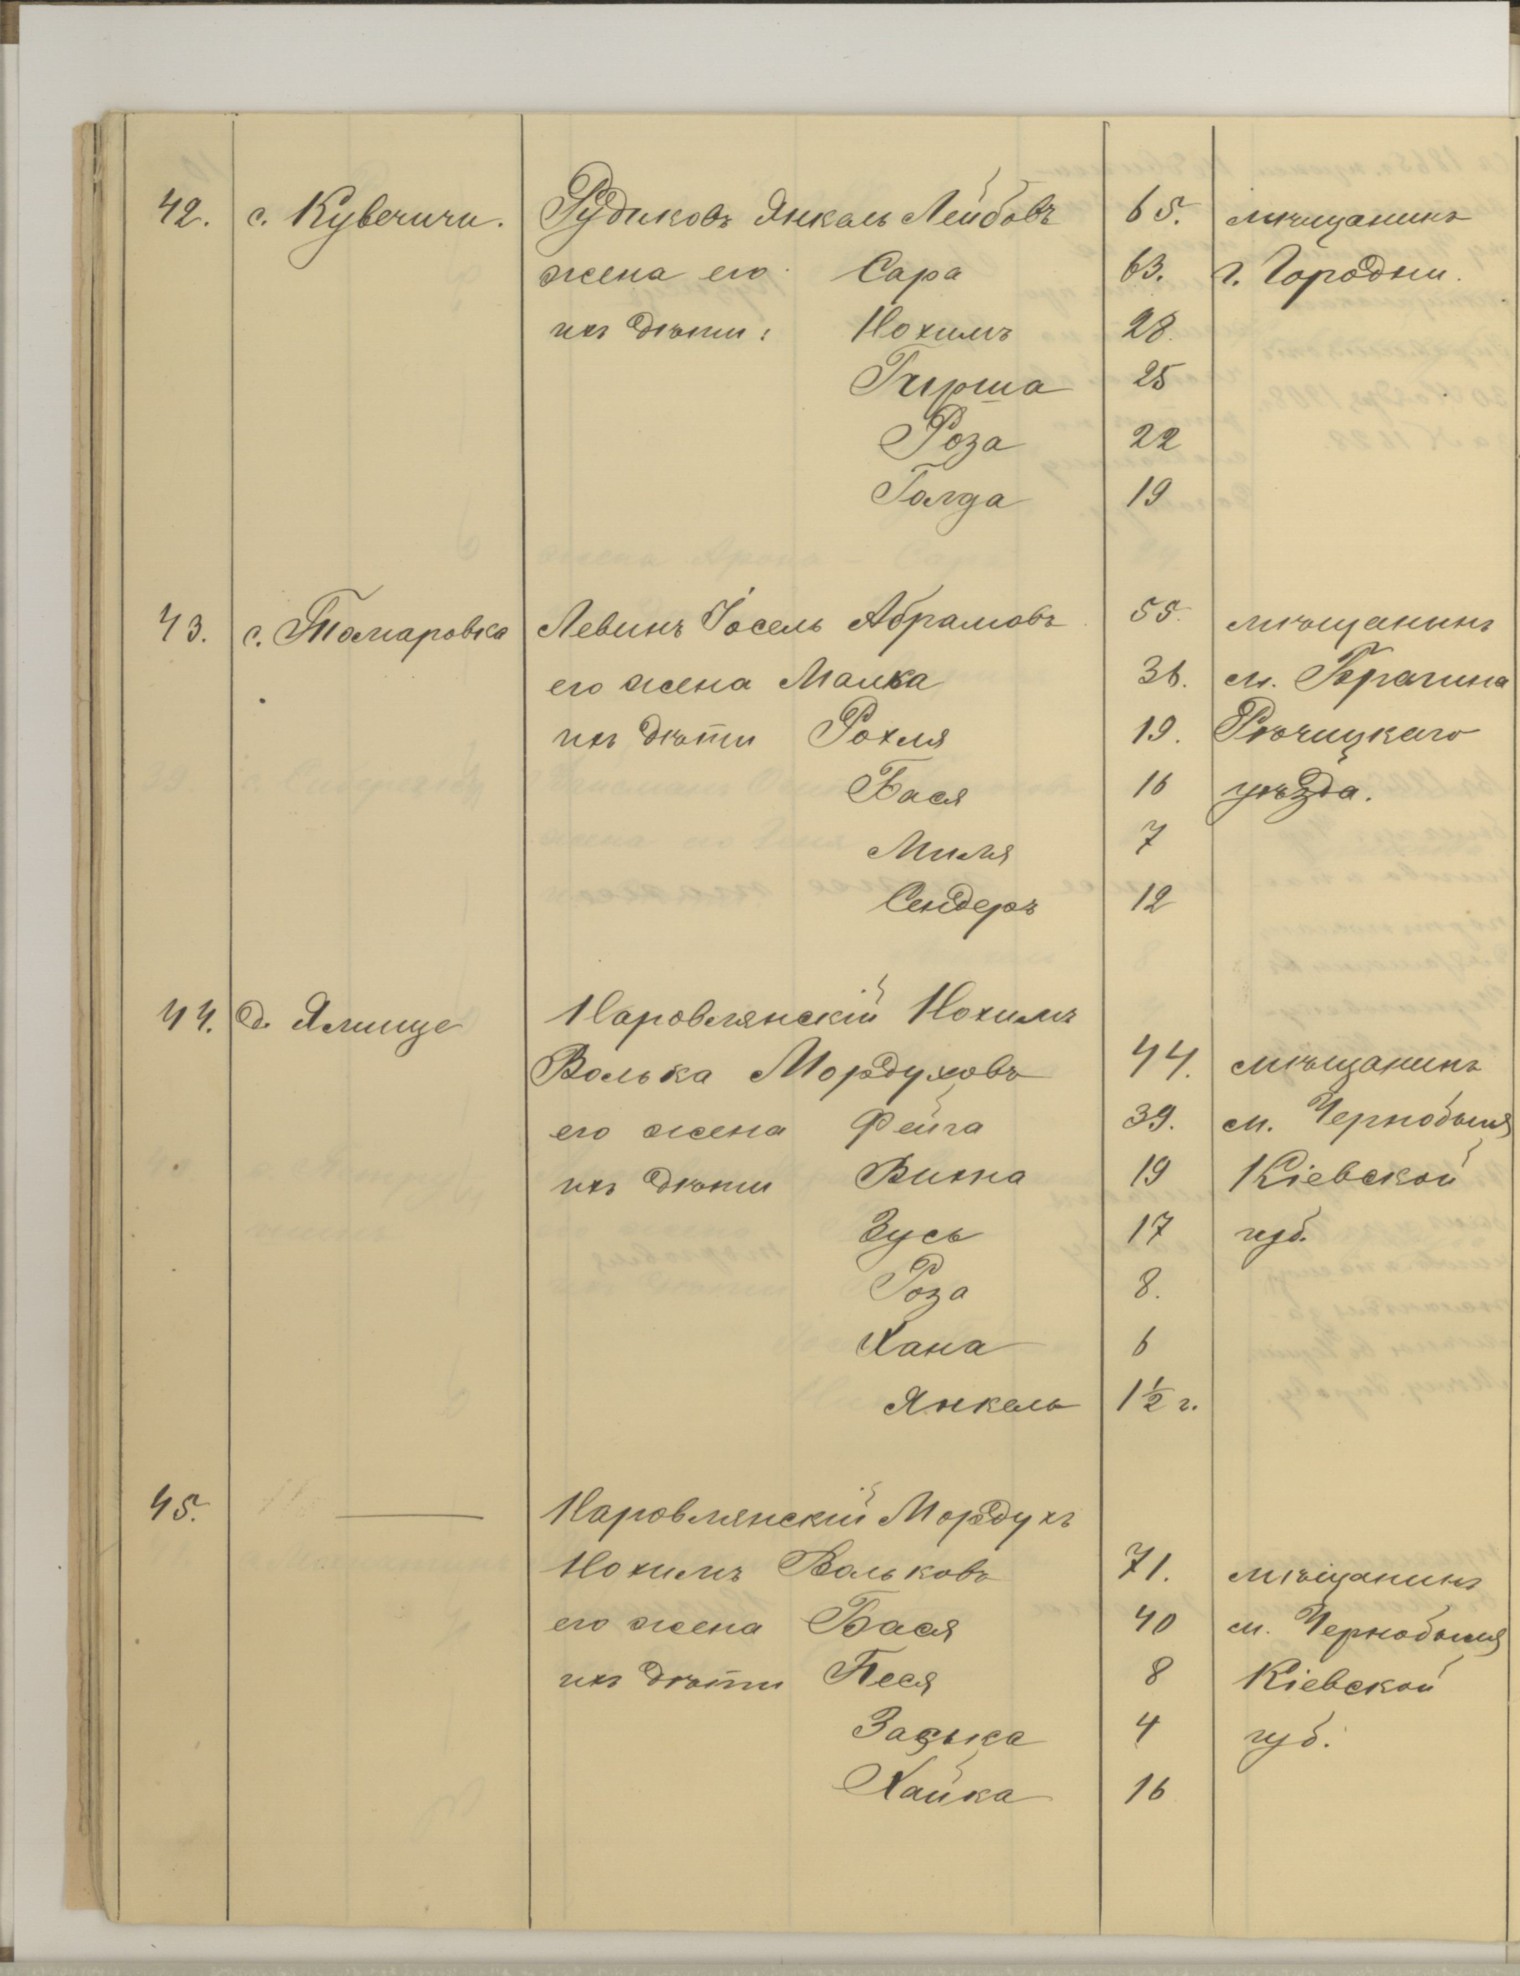 42. с. Кувечичи. Рудиковъ Янкель Лейбовъ 65. мѣщанинъ
жена его Сара 63. г. Городни.
ихъ дѣти: Нохимъ 28.
Гирша 25
Роза 22
Голда 19
43. с. Томаровка Левинъ Іосель Абрамовъ 55. мѣщанинъ
его жена Малка 36. м. Брагина
ихъ дѣти Рохля 19. Рѣчицкаго
Бася 16 уѣзда.
Миля 7
Сендеръ 12
44. д. Ямище Наровлянскій Нохимъ
Волька Мордуховъ 44. мѣщанинъ
его жена Фейга 39. м. Чернобыля
ихъ дѣти Вихна 19 Кіевской
Зусь 17 губ.
Роза 8.
Хана 6
Янкель 1½ г.
45. — Наровлянскій Мордухъ
Нохимъ Вольковъ 71. мѣщанинъ
его жена Бася 40 м. Чернобыля
ихъ дѣти Песя 8 Кіевской
4 губ.
Хайка 16